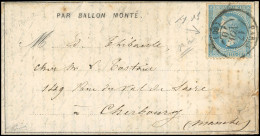 PAR BALLON MONTÉ.
M. D. Thibault
chez M. L.
149 Rue du Val de Saire
à Cherbourg
(Manche)